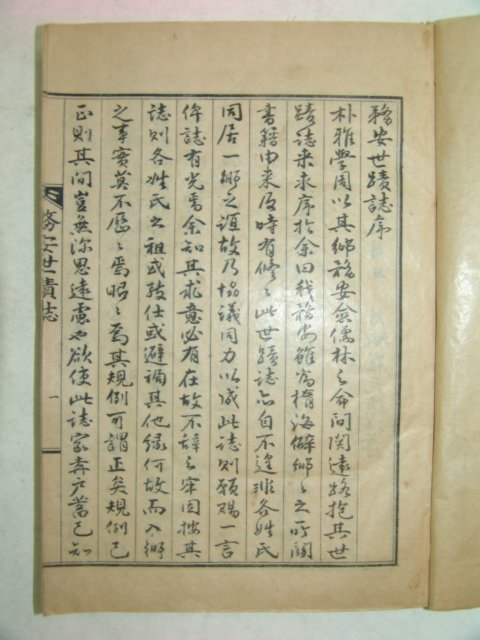 務安世蹟誌序
朴雅學周以其鄉務安僉儒林之命間関遠路抱其世
蹟誌来求序於余曰我務安雖為海僻鄉〻之所関
書籍由来及時有修〻此世蹟誌亦自不各姓氏
同居一鄉之誼故乃協議同力以成此誌則願賜一言
俾誌有光焉余知其求意必有在故不辭之牢因按其
誌則各姓氏之祖或致仕或避禍其他緣何故而入鄉
之事實莫不歷〻焉昭〻焉其規例可謂正矣規例已
正則其間豈無深思遠慮也欲使此誌家弆戶蓄已知
務安世蹟誌
一